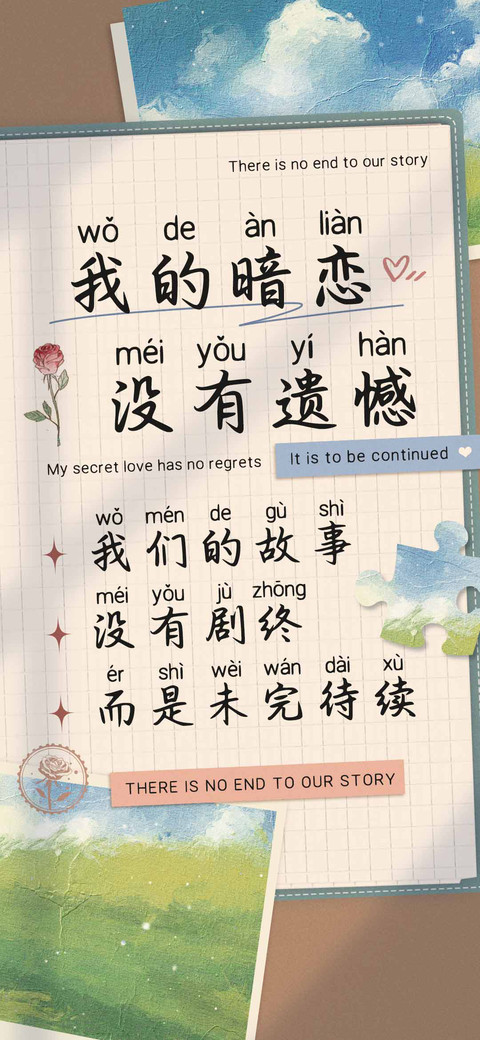 There is no end to our story
wǒ de àn liàn
我的暗恋
méi yǒu yí hàn
没有遗憾
My secret love has no regrets
It is to be continued
wǒ mén de gù shì
我们的故事
méi yǒu jù zhōng
没有剧终
ér shì wèi wán dài xù
而是未完待续
THERE IS NO END TO OUR STORY